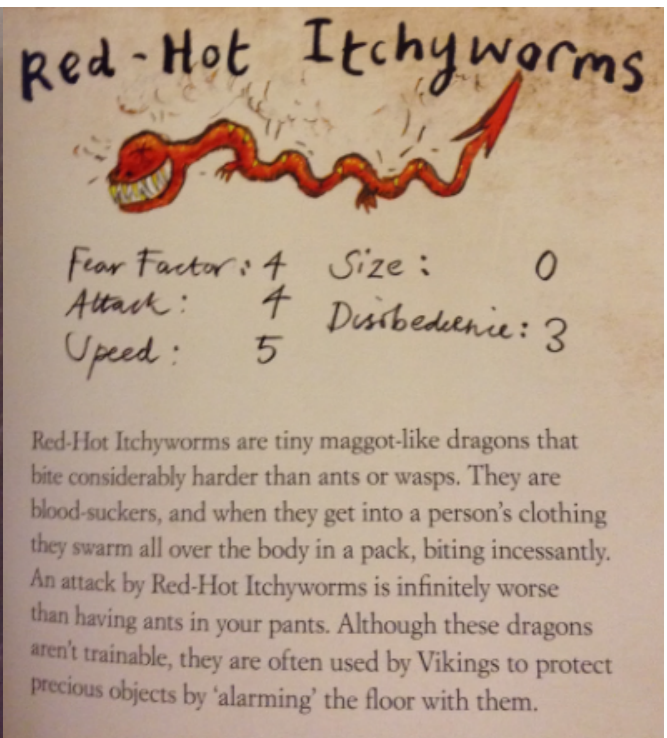 Red-Hot Itchyworms
Fear Factor: 4 Size: 0
Attack: 4 Disobedience: 3
Speed: 5
Red-Hot Itchyworms are tiny maggot-like dragons that
bite considerably harder than ants or wasps. They are
blood-suckers, and when they get into a person's clothing
they swarm all over the body in a pack, biting incessantly.
An attack by Red-Hot Itchyworms is infinitely worse
than having ants in your pants. Although these dragons
aren't trainable, they are often used by Vikings to protect
precious objects by 'alarming' the floor with them.